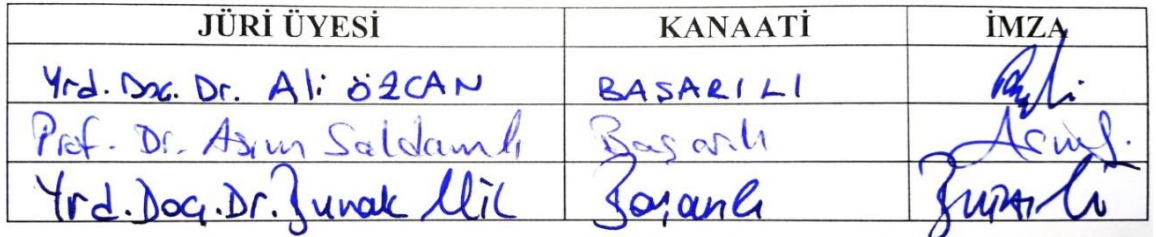 JÜRİ ÜYESİ KANAATİ İMZA
Yrd. Doç. Dr. Ali ÖZCAN BAŞARILI
Prof. Dr. Asım Saldamlı Başarılı
Yrd. Doç. Dr. Başarılı